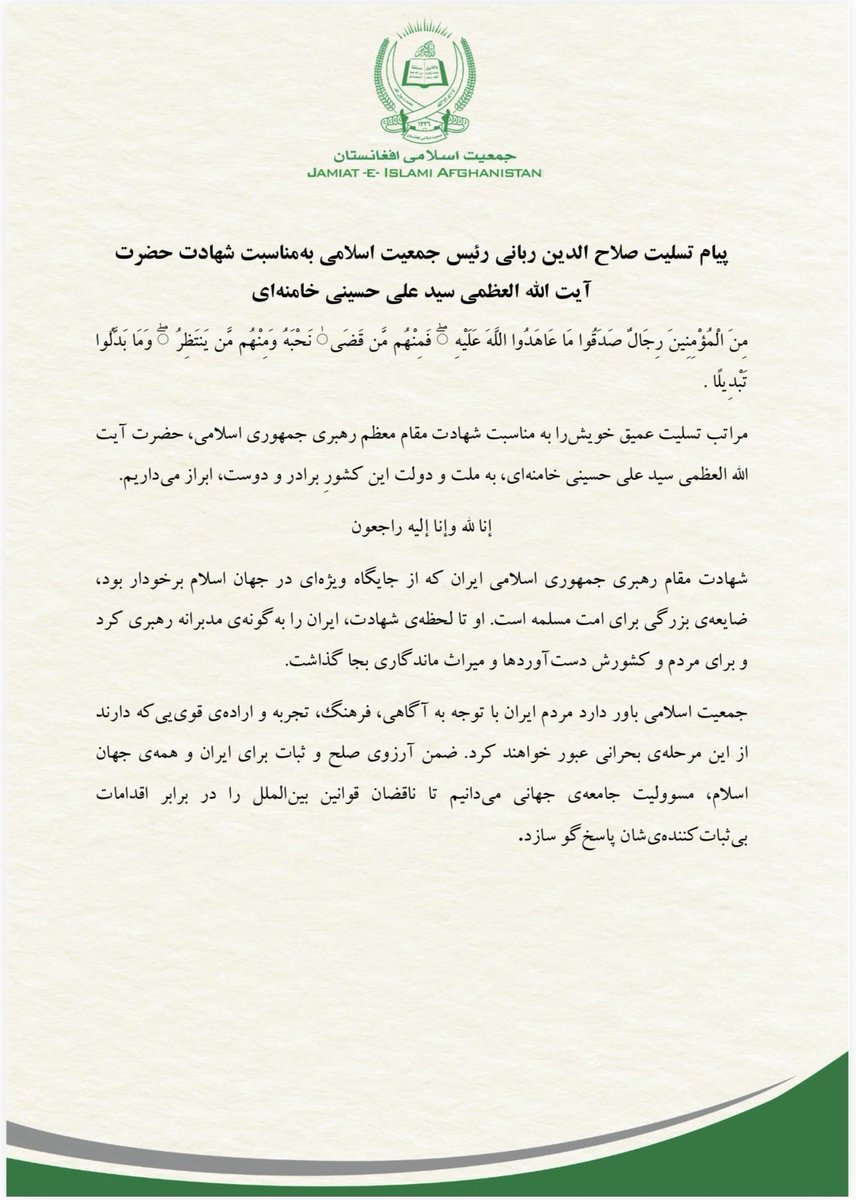 ۱۳۳۶
جمعیت اسلامی افغانستان
JAMIAT -E- ISLAMI AFGHANISTAN
پیام تسلیت صلاح الدین ربانی رئیس جمعیت اسلامی به‌مناسبت شهادت حضرت
آیت الله العظمی سید علی حسینی خامنه‌ای
مِنَ الْمُؤْمِنِينَ رِجَالٌ صَدَقُوا مَا عَاهَدُوا اللَّهَ عَلَيْهِ ۖ فَمِنْهُم مَّن قَضَىٰ نَحْبَهُ وَمِنْهُم مَّن يَنتَظِرُ ۖ وَمَا بَدَّلُوا
تَبْدِيلًا .
مراتب تسلیت عمیق خویش‌را به مناسبت شهادت مقام معظم رهبری جمهوری اسلامی، حضرت آیت
الله العظمی سید علی حسینی خامنه‌ای، به ملت و دولت این کشورِ برادر و دوست، ابراز می‌داریم.
إنا لله وإنا إليه راجعون
شهادت مقام رهبری جمهوری اسلامی ایران که از جایگاه ویژه‌ای در جهان اسلام برخودار بود،
ضایعه‌ی بزرگی برای امت مسلمه است. او تا لحظه‌ی شهادت، ایران را به‌گونه‌ی مدبرانه رهبری کرد
و برای مردم و کشورش دست‌آوردها و میراث ماندگاری بجا گذاشت.
جمعیت اسلامی باور دارد مردم ایران با توجه به آگاهی، فرهنگ، تجربه و اراده‌ی قوی‌یی‌که دارند
از این مرحله‌ی بحرانی عبور خواهند کرد. ضمن آرزوی صلح و ثبات برای ایران و همه‌ی جهان
اسلام، مسوولیت جامعه‌ی جهانی می‌دانیم تا ناقضان قوانین بین‌الملل را در برابر اقدامات
بی‌ثبات‌کننده‌ی‌شان پاسخ‌گو سازد.